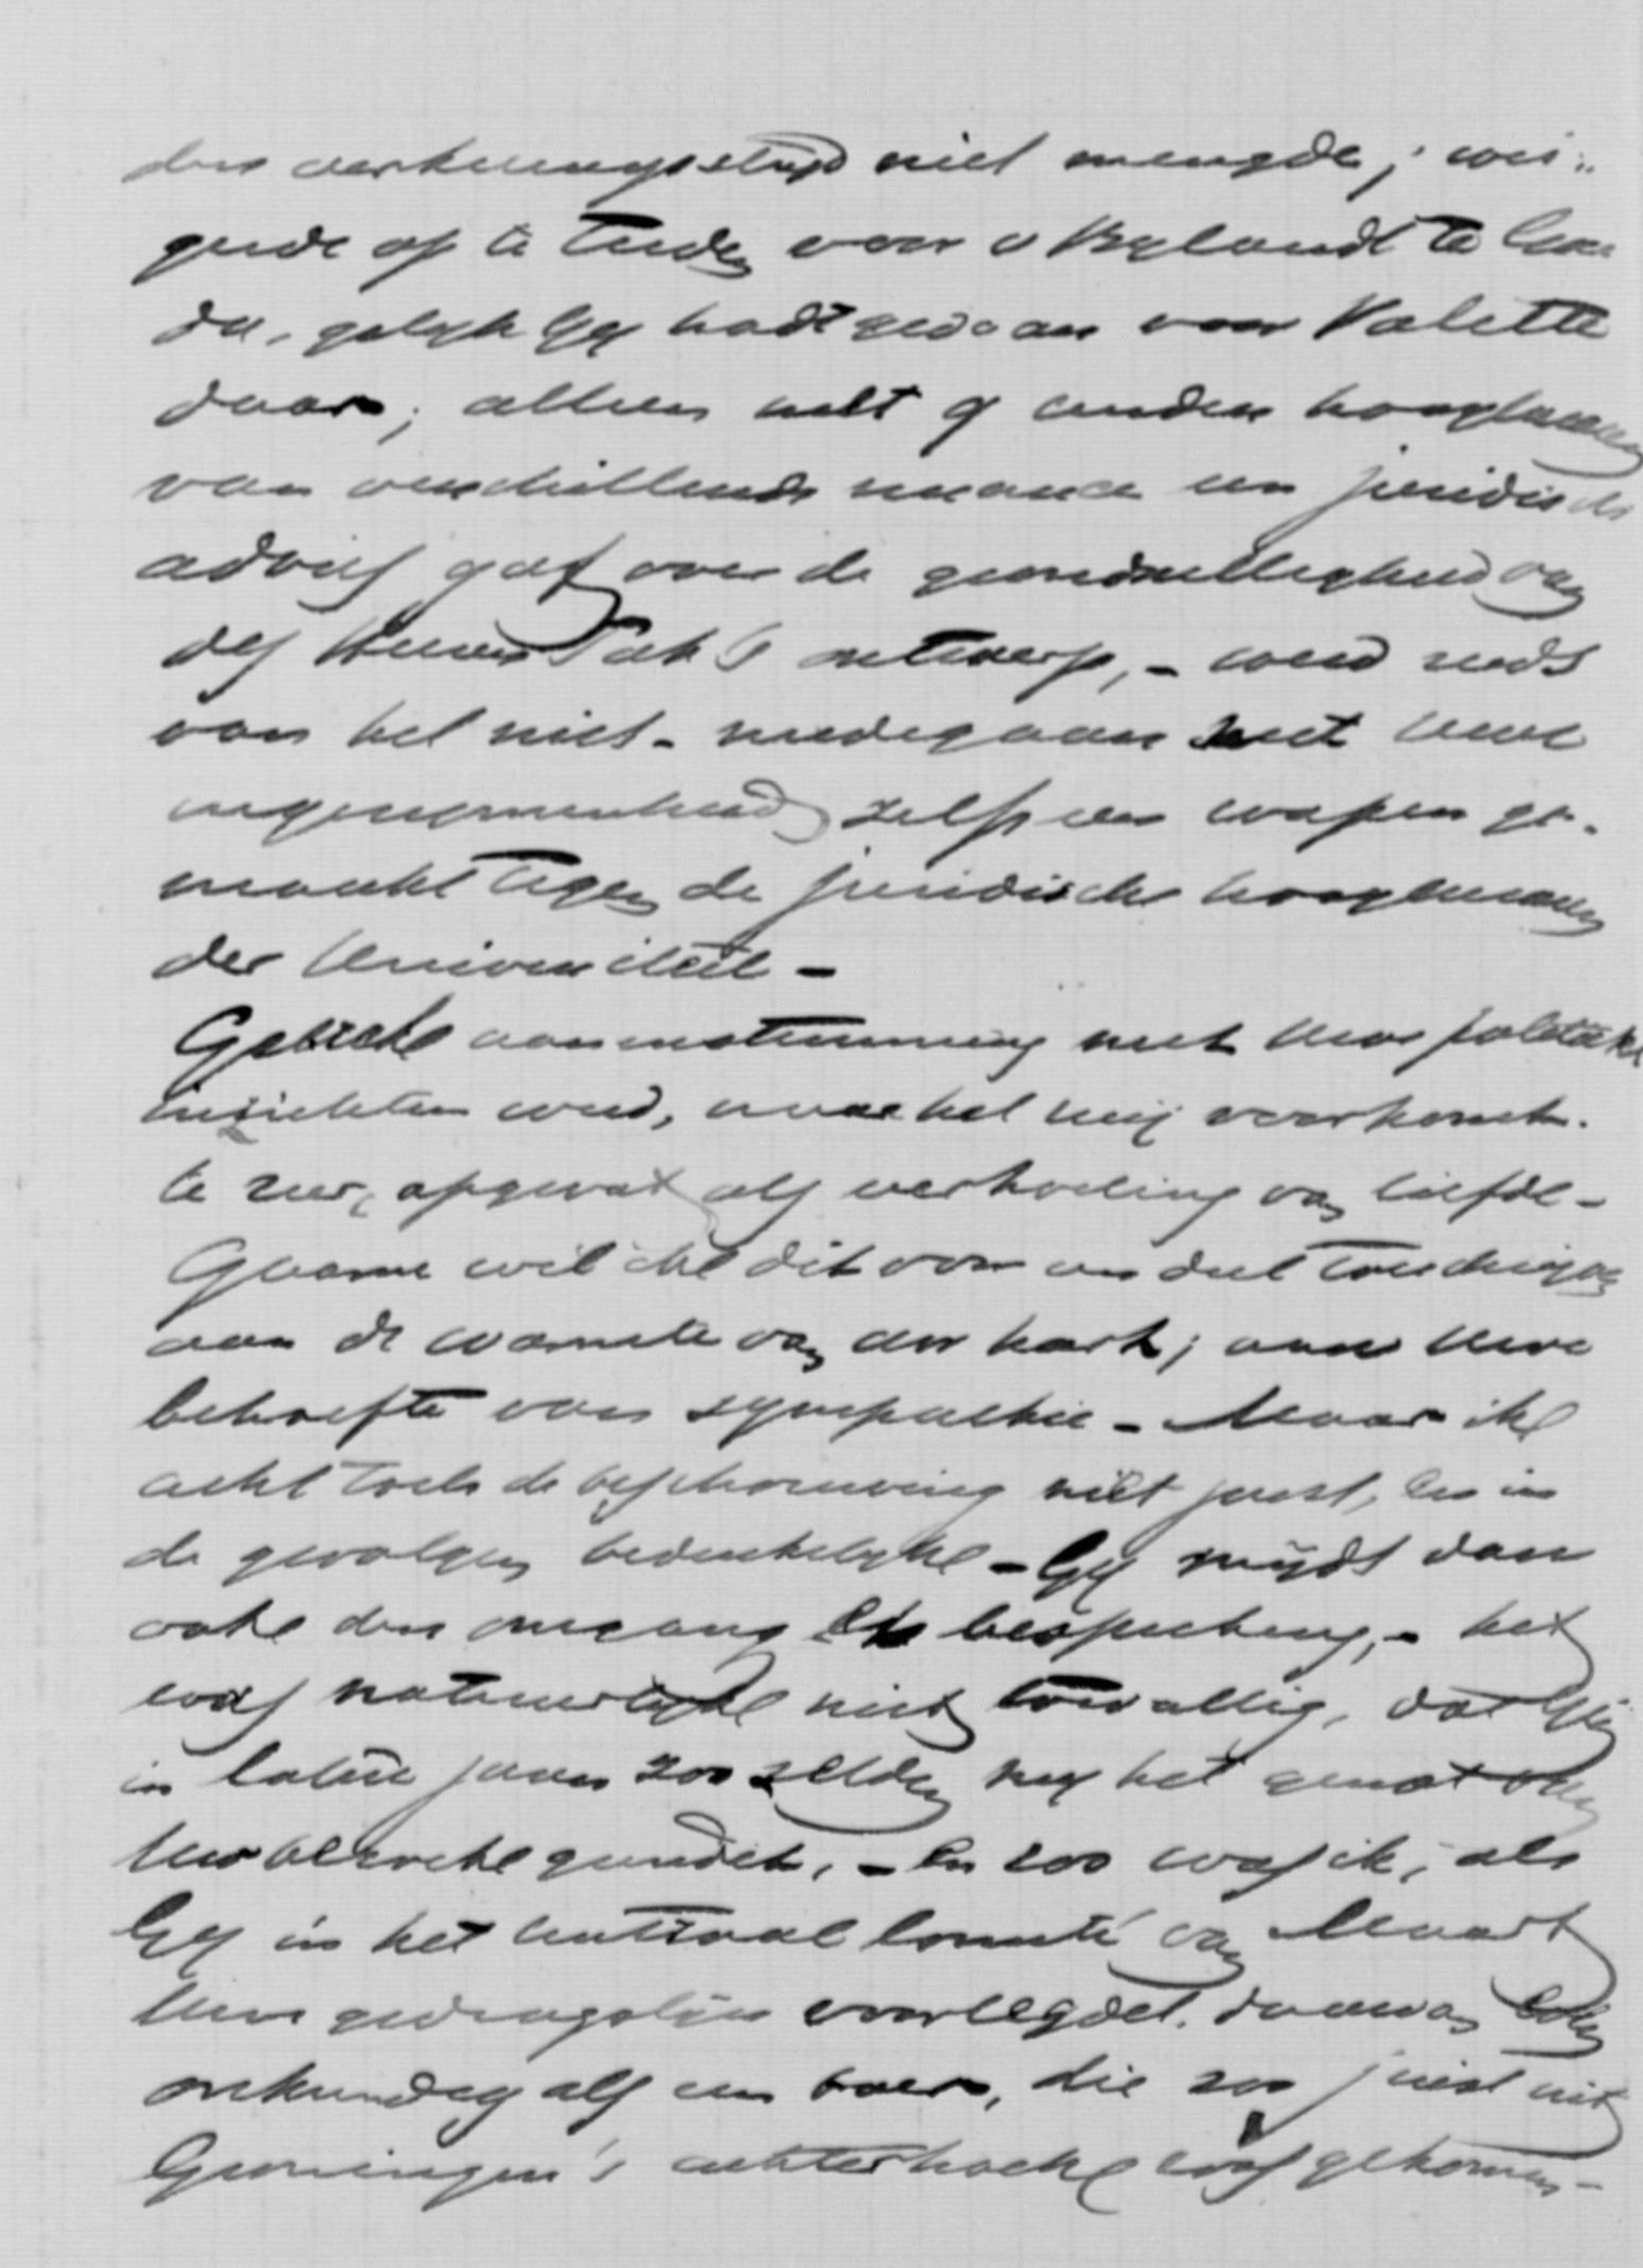 den verkiezingsstrijd niet mengde; wei-
gerde op te treden voor v Bylandt te Gou-
da, gelijk Gij hadt gedaan voor Valette
daar; alleen met 9 andere hoogleeraren
van verschillende nuance een juridisch
advies gaf over de grondwettigheid van
des Heeren Tak's ontwerp, - werd reeds
van het niet-medegaan met Uwe
ingenomenheid zelfs een wapen ge-
maakt tegen de juridische hoogleeraren
der Universiteit -
Gebrek aan instemming met Uwe politieke
inzichten werd, naar het mij voorkomt.
te zeer, opgevat als verkoeling van liefde -
Gaarne wil ik dit voor een deel toeschrijven
aan de warmte van uw hart; aan Uwe
behoefte aan sympathie - Maar ik
acht toch de beschouwing niet juist, en in
de gevolgen bedenkelijk - Gij mijdt dan
ook den omgang en bespreking, - het
was natuurlijk niet toevallig, dat Gij
in latere jaren zoo zelden mij het genot van
Uw bezoek gundet, - En zoo was ik, als
Gij in het Centraal Comité van Maart
Uwe gedragslijn voorlegdet. daarvan even
onkundig als een boer, die zoo juist uit
Groningen's achterhoek was gekomen -